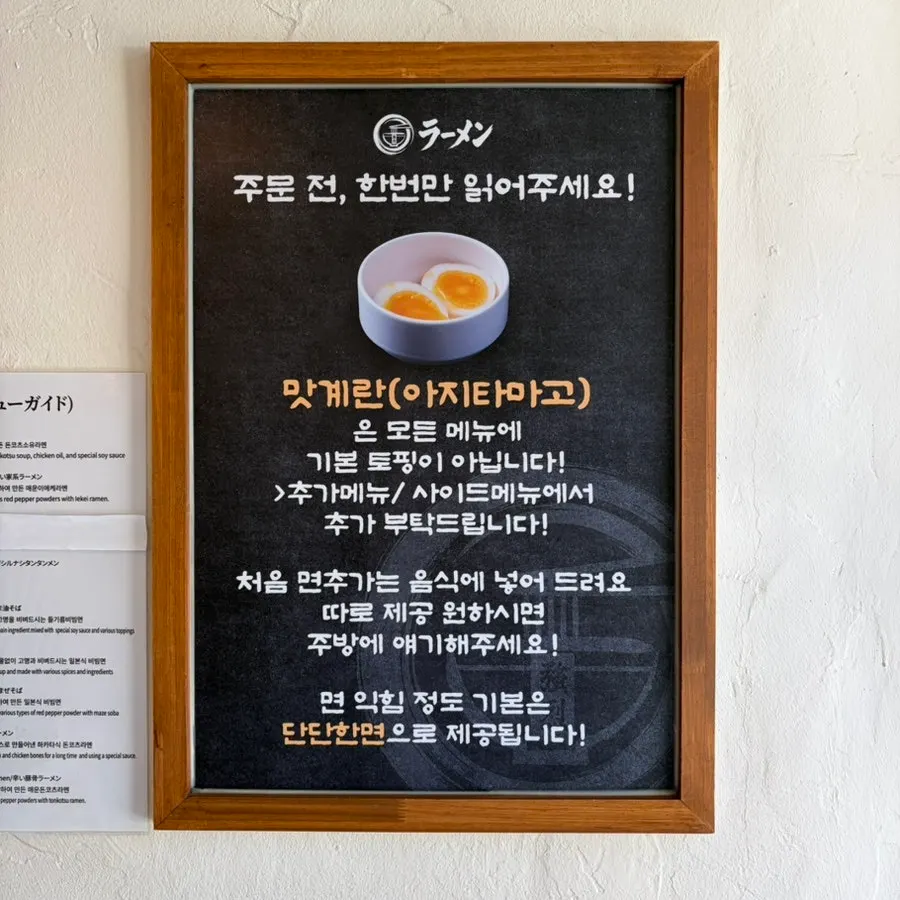 ラーメン
주문 전, 한번만 읽어주세요!
맛계란(아지타마고)
은 모든 메뉴에
기본 토핑이 아닙니다!
>추가메뉴/ 사이드메뉴에서
추가 부탁드립니다!
처음 면추가는 음식에 넣어 드려요
따로 제공 원하시면
주방에 얘기해주세요!
면 익힘 정도 기본은
단단한면으로 제공됩니다!
ューガイド)
돈코츠소유라멘
kotsu soup, chicken oil, and special soy sauce
い家系ラーメン
하여 만든 매운이에케라멘
s red pepper powders with Iekei ramen.
シルナシタンタンメン
油そば
고명을 비벼드시는 들기름비빔면
ain ingredient mixed with special soy sauce and various toppings
없이 고명과 비벼드시는 일본식 비빔면
up and made with various spices and ingredients
ぜそば
하여 만든 일본식 비빔면
various types of red pepper powder with maze soba
ーメン
스로 만들어낸 하카타식 돈코츠라멘
and chicken bones for a long time and using a special sauce.
men/辛い豚骨ラーメン
하여 만든 매운돈코츠라멘
pepper powders with tonkotsu ramen.